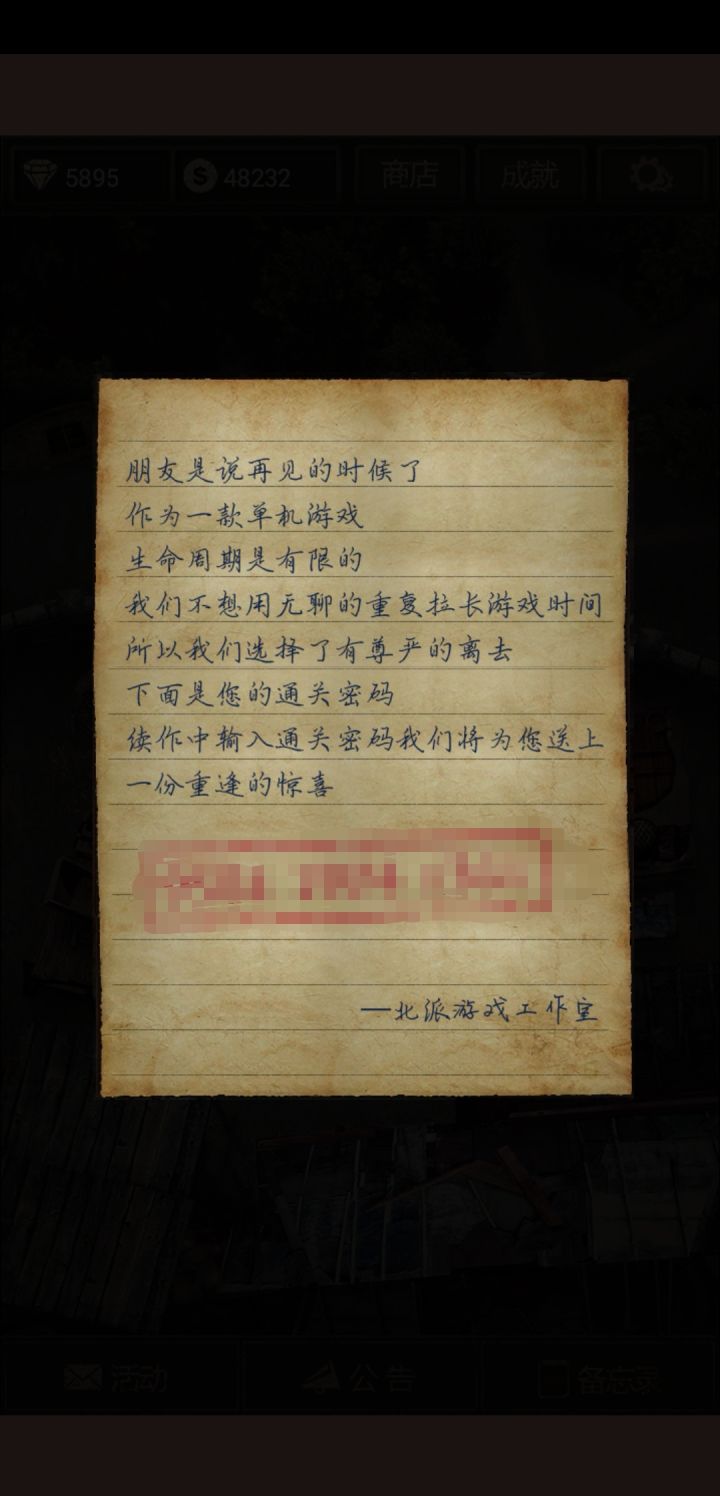 5895
48232
商店
成就
朋友是说再见的时候了
作为一款单机游戏
生命周期是有限的
我们不想用无聊的重复拉长游戏时间
所以我们选择了有尊严的离去
下面是您的通关密码
续作中输入通关密码我们将为您送上
一份重逢的惊喜
—北派游戏工作室
活动
公告
备忘录